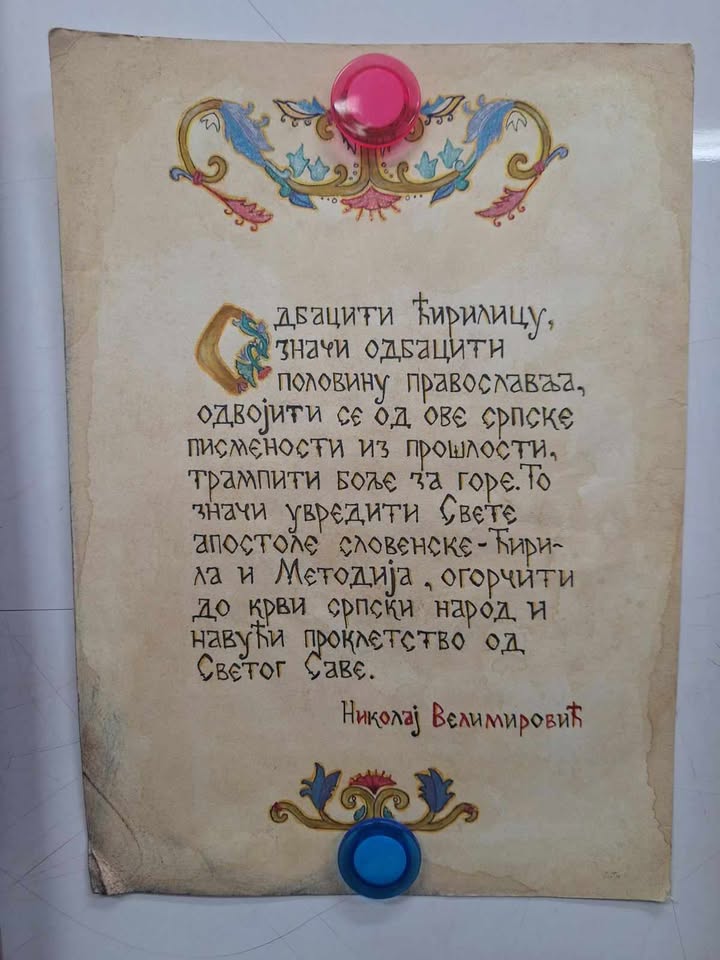 Одбацити Ћирилицу,
значи одбацити
половину православља,
одвојити се од ове српске
писмености из прошлости,
трампити боље за горе. То
значи увредити Свете
апостоле словенске - Ћири-
ла и Методија, огорчити
до крви српски народ и
навући проклетство од
Светог Саве.
Николај Велимировић